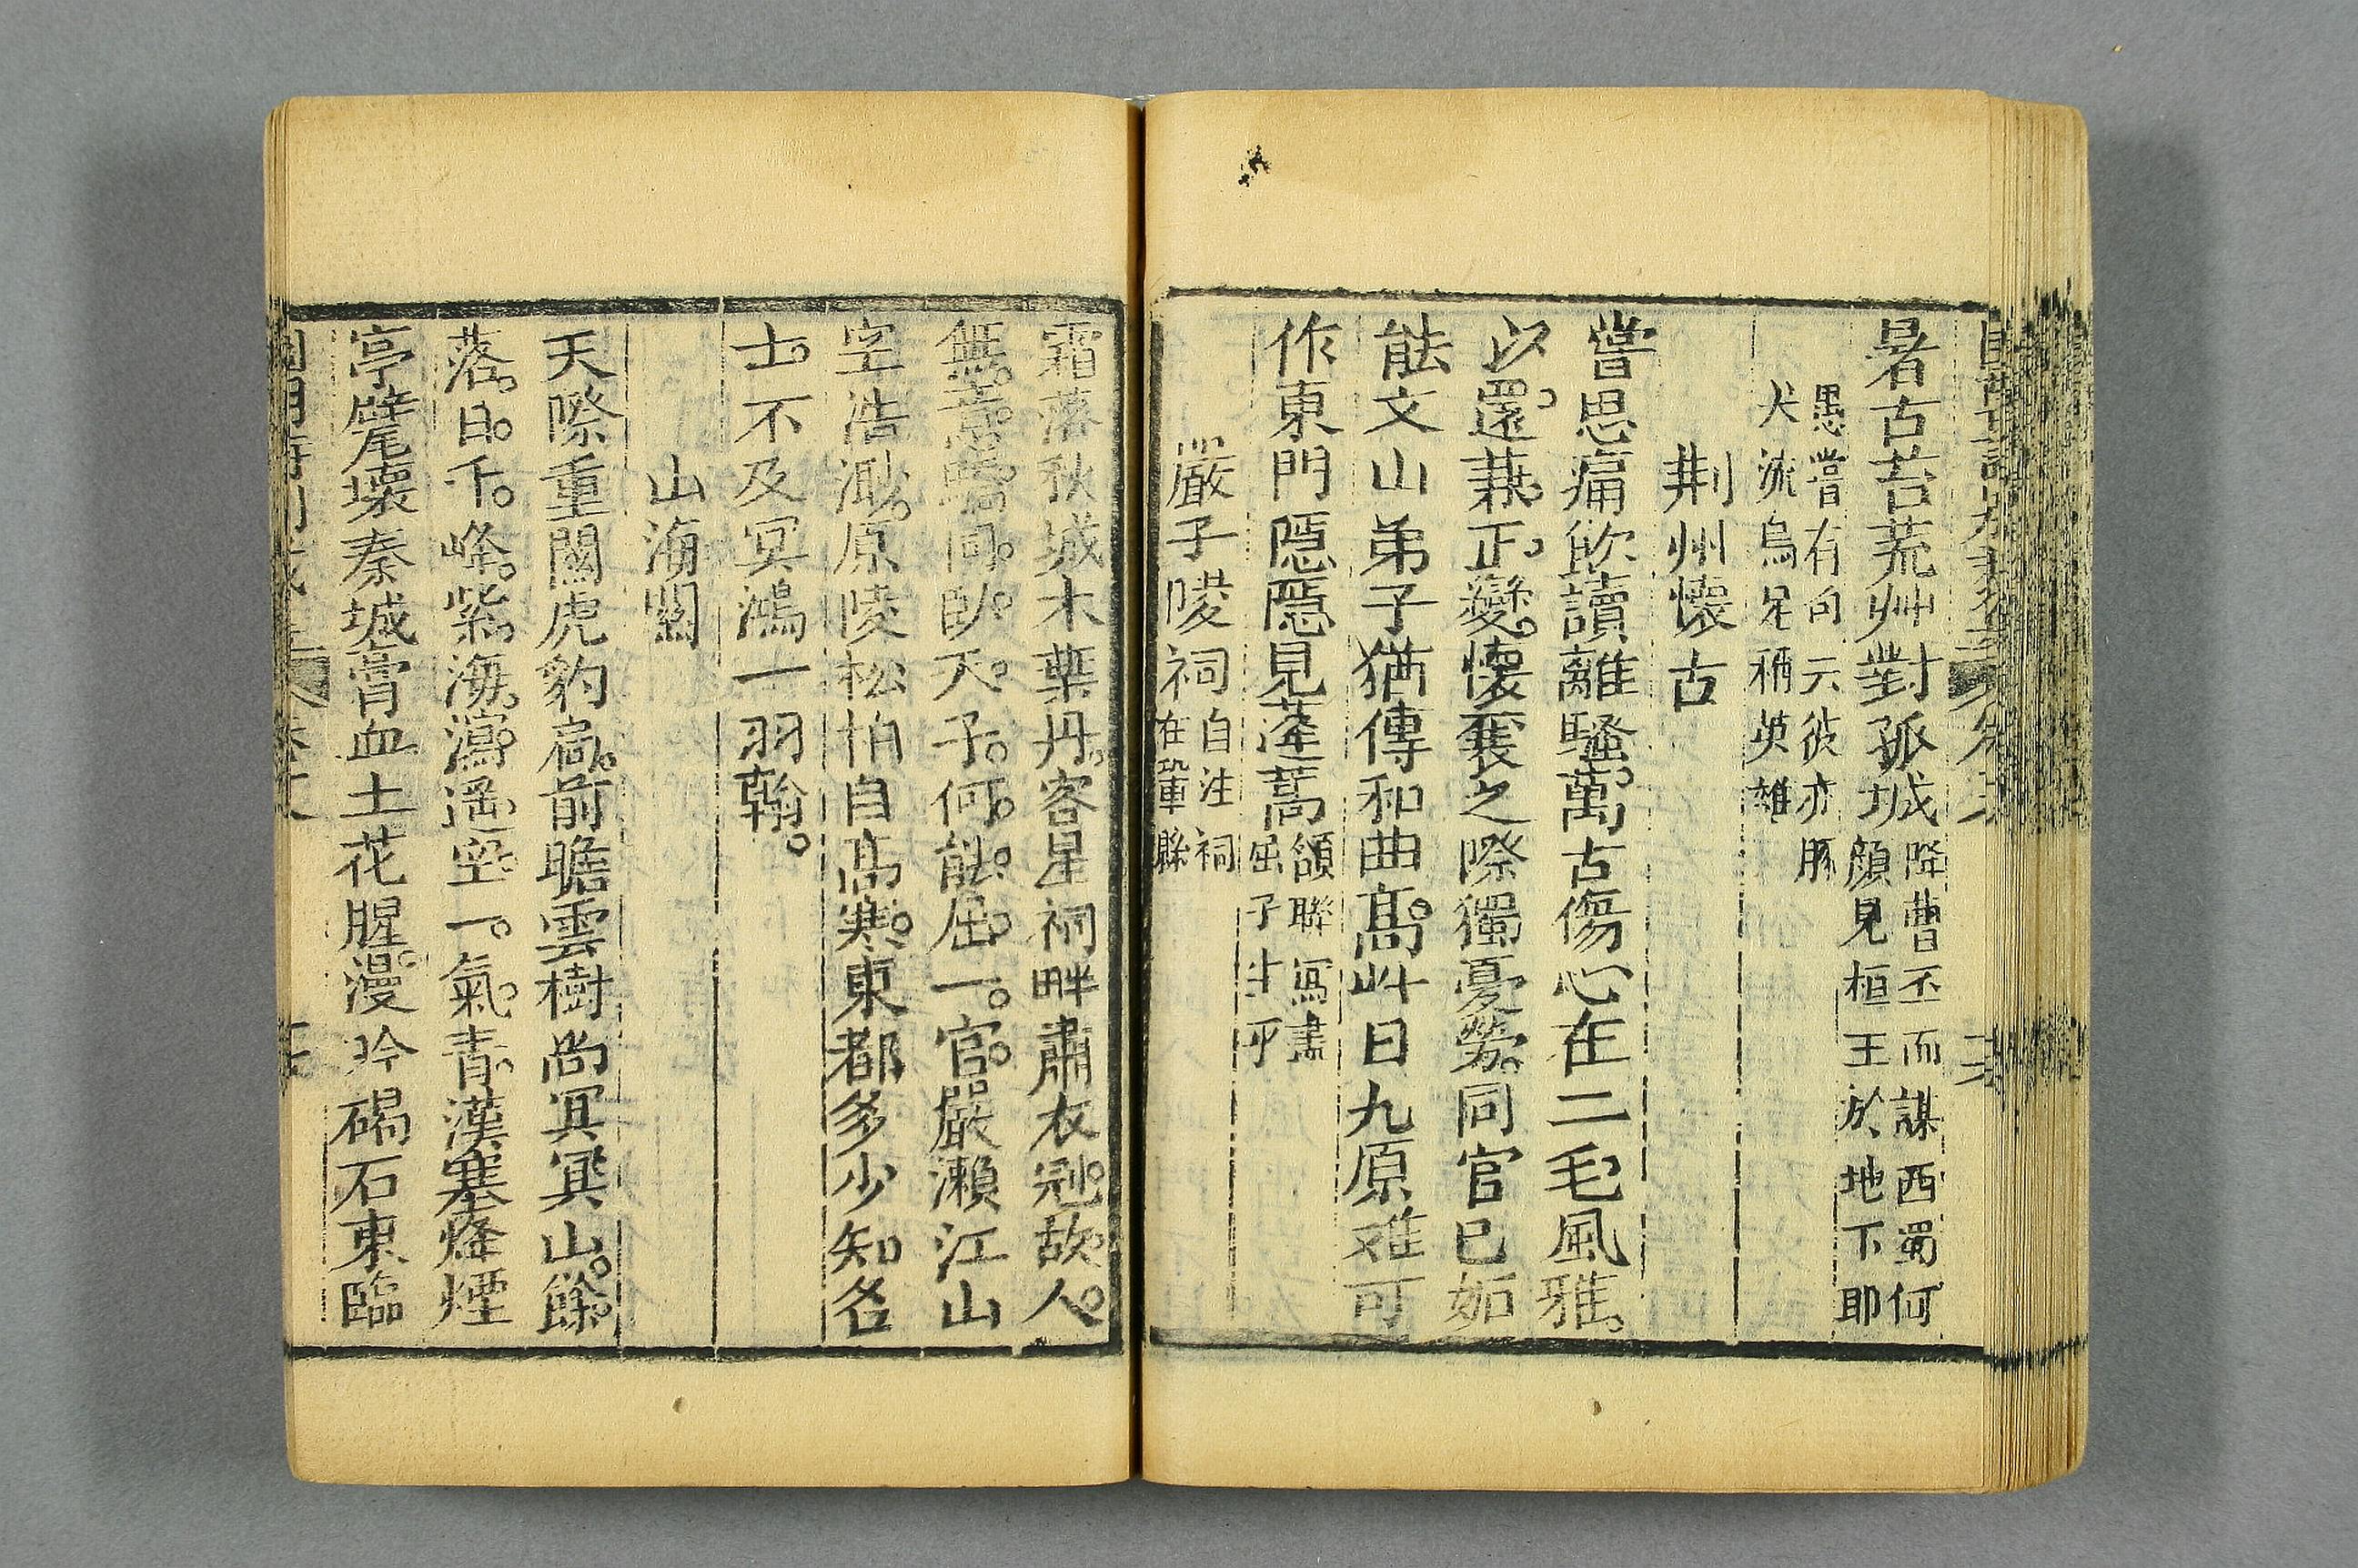 暑古苔荒艸對孤城降曹丕而謀西蜀何
顔見桓王於地下耶
愚嘗有句云彼亦豚
犬流烏足稱英雄
荆州懷古
嘗思痛飲讀離騷。萬古傷心在二毛風雅。
以還。兼。正。變。懷襄之際獨憂勞。同官已妬
能文山弟子猶傳和曲高。艸日九原难可
作東門隱隱見蓬蒿頷聯寫盡
屈子生平
嚴子陵祠自注祠
在鞏縣
霜落秋城木葉丹。客星祠畔肅衣冠。故。人。
無。意。驕。同。卧。天。子。何。能。屈。一。官。嚴瀨江山
空浩渺。原陵松柏自高寒。東都多少知名
士。不及冥鴻一羽翰。
山海關
天際重關虎豹扃。前瞻雲樹尚冥冥山。餘。
落。日。千。峰。紫。海。瀉。遥。空。一。氣。青。漢塞烽煙
亭壁壞秦城膏血土花腥。漫吟碣石東臨